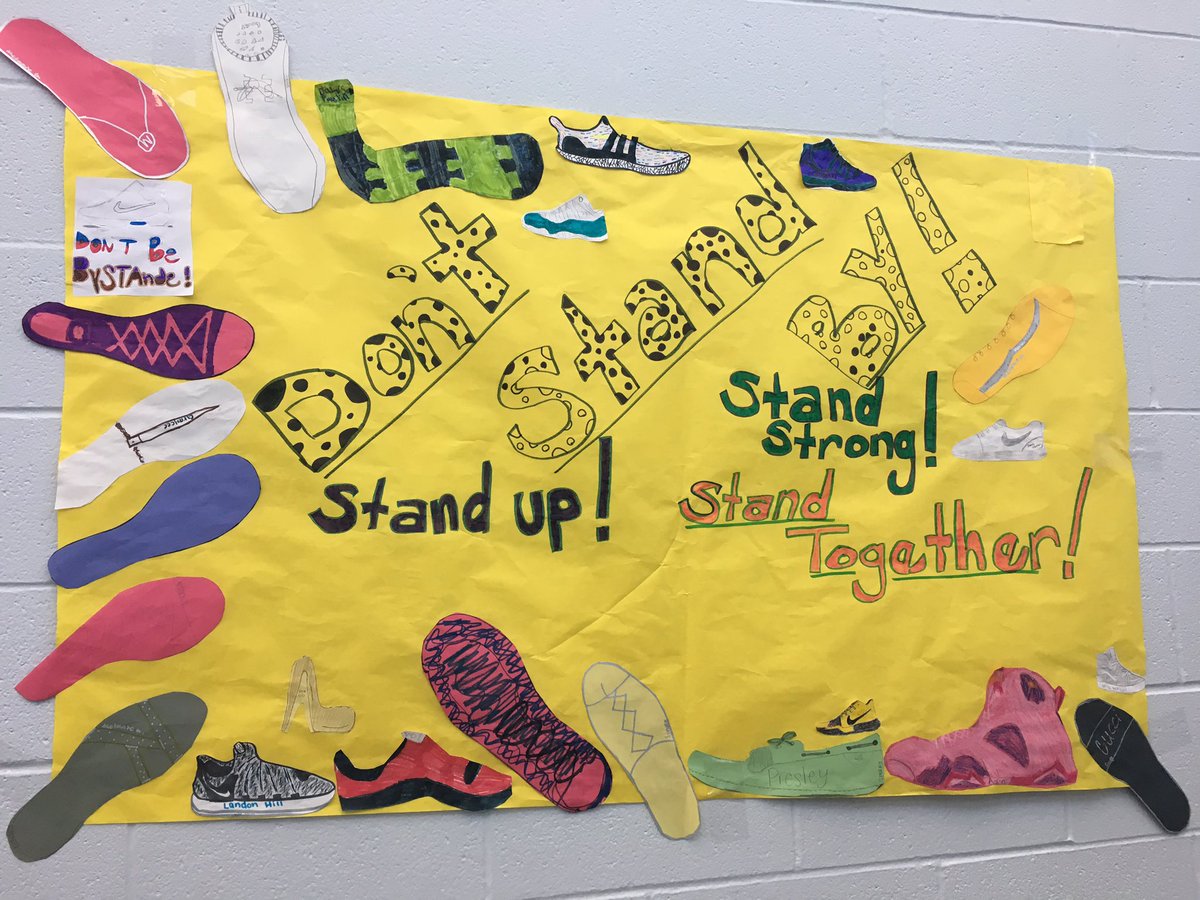 Don't
Stand
By!
Stand up!
Stand
Strong!
Stand
Together!
DON T Be
BYSTAnde!
Landon Hill
Presley
GUCCI